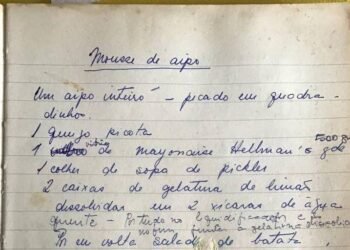 Mousse de aipo
Um aipo inteiro - picado em quadra-
dinhos.
1 queijo picota
1 vidro de mayonaise Hellman's 500 gr gde
1 colher de sopa de pickles
2 caixas de gelatina de limão
dissolvidas em 2 xícaras de água
quente - Bi tudo no liquidificador e
no fim junte a gelatina dissolvida
Pi em volta salada de batata